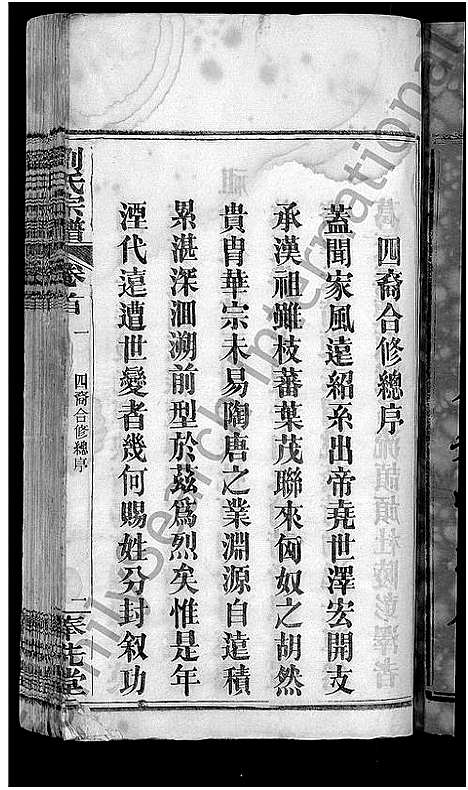 四裔合修總序
蓋聞家風遠紹系出帝堯世澤宏開支
承漢祖雖枝蕃葉茂聯來匈奴之胡然
貴胄華宗未易陶唐之業淵源自遠積
累湛深洄溯前型於茲爲烈矣惟是年
湮代遠遭世變者幾何賜姓分封叙功
劉氏宗譜
卷首
一
四裔合修總序
二
堂